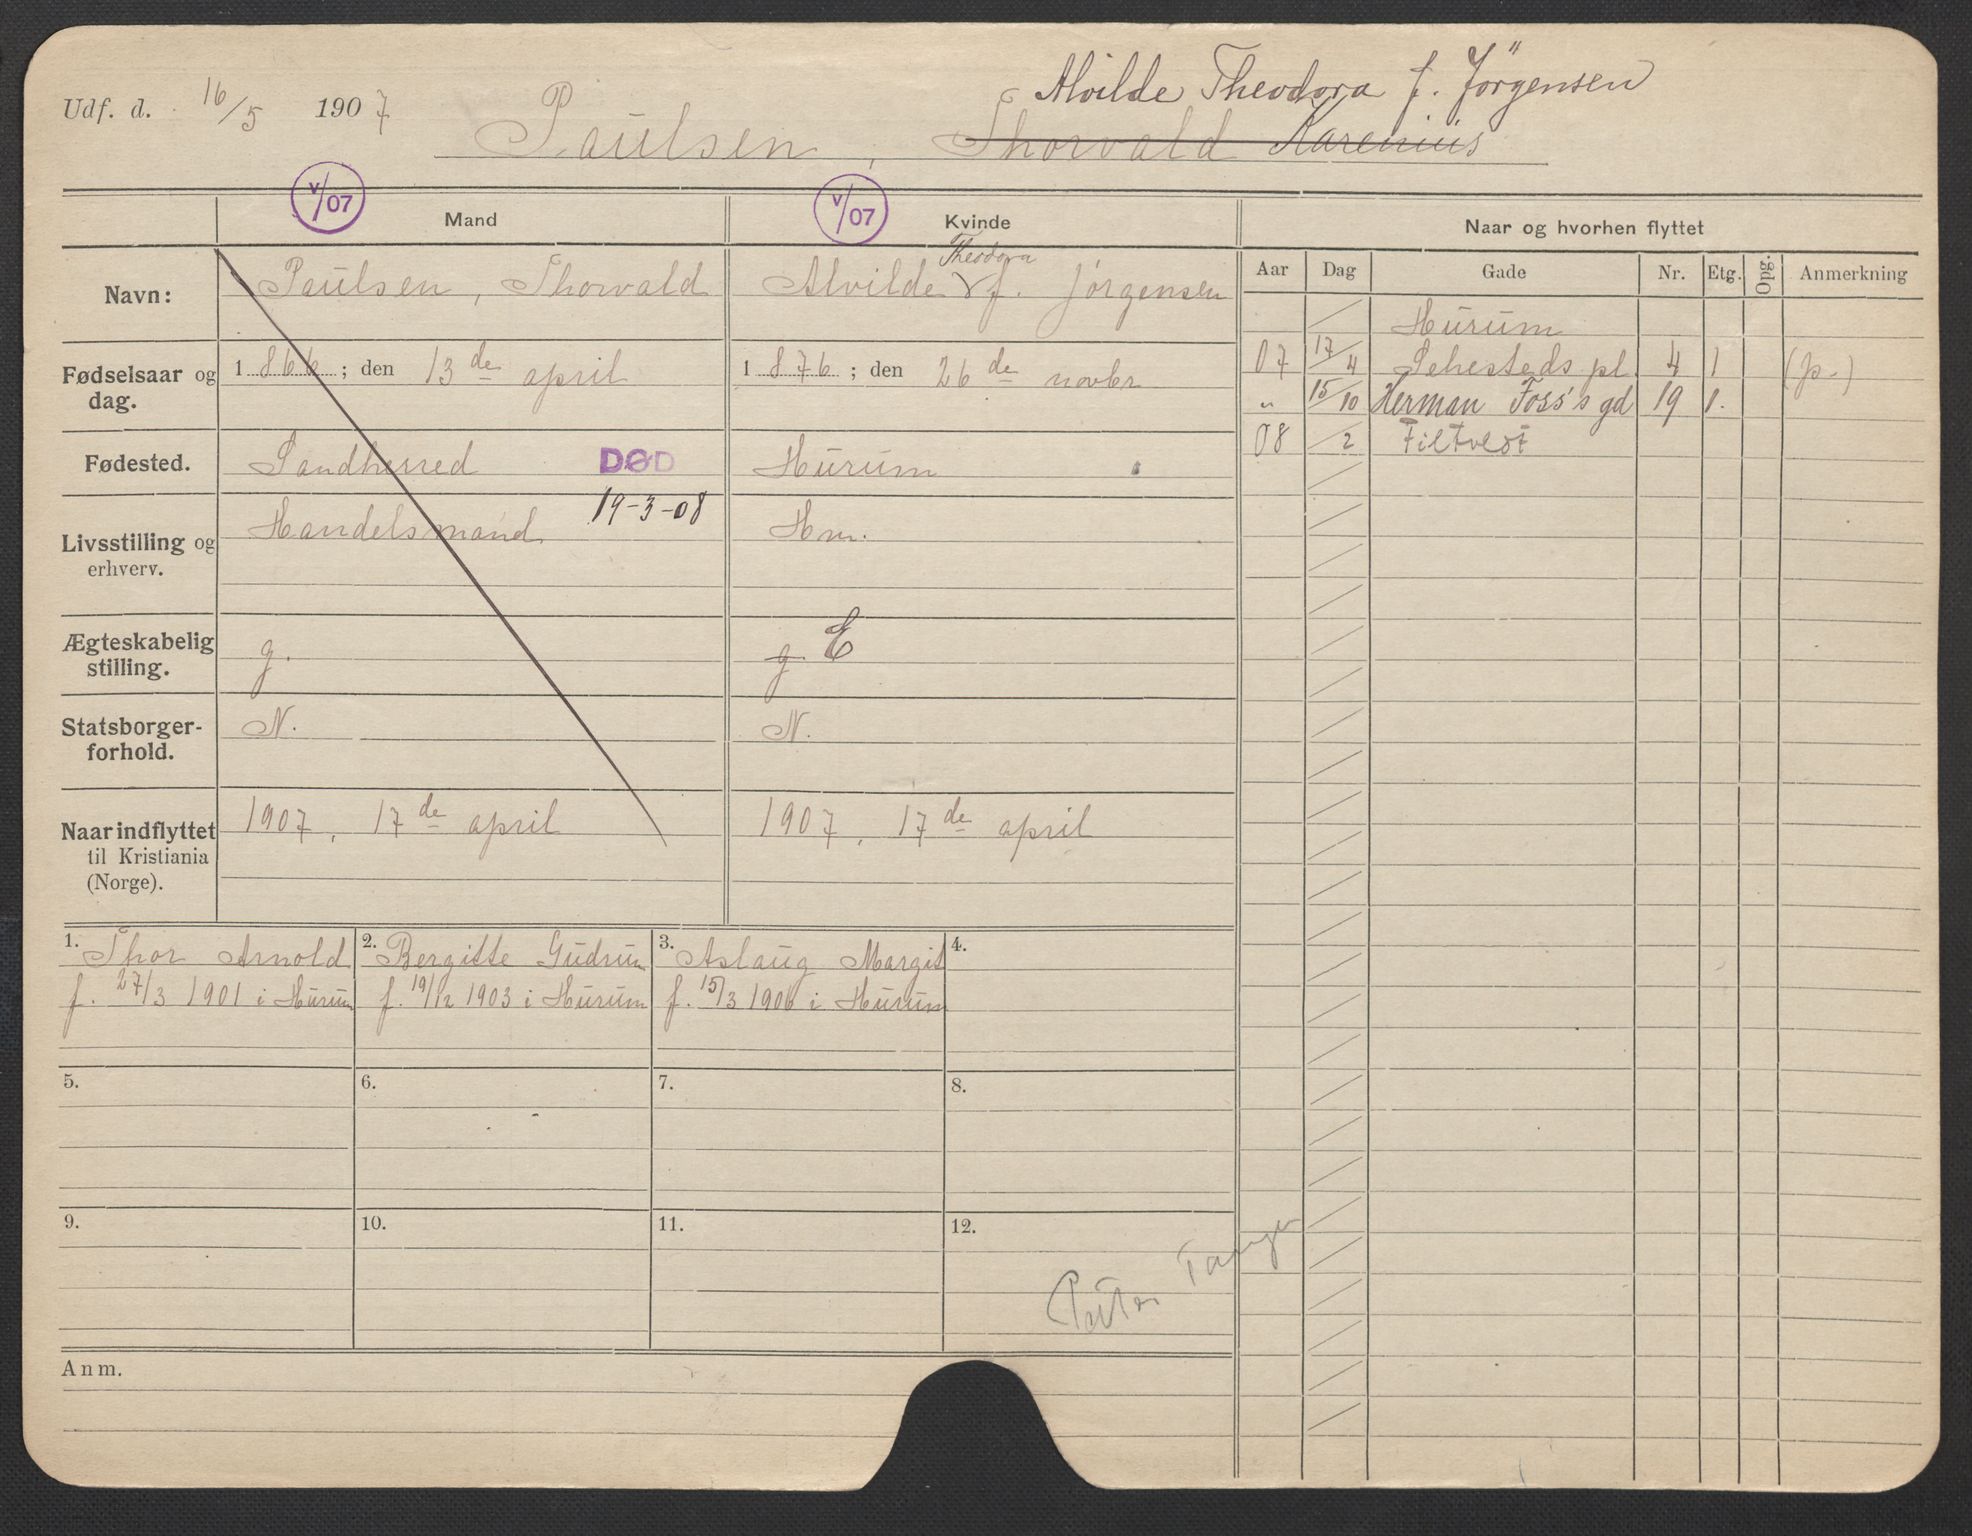 Udf. d. 16/5 1907
Alvilde Theodora f. Jörgensen
Paulsen, Thorvald Karenius
V/07
V/07
Mand
Kvinde
Navn:
Paulsen, Thorvald
Theodora
Alvilde f. Jörgensen
Fødselsaar og dag.
1866; den 13de april
1876; den 26de novbr
Fødested.
Sandherred
DØD
19-3-08
Hurum
Livsstilling og erhverv.
Handelsmand
Hm.
Ægteskabelig stilling.
g.
g. E
Statsborger-
forhold.
N.
N.
Naar indflyttet
til Kristiania
(Norge).
1907, 17de april
1907, 17de april
Naar og hvorhen flyttet
Aar Dag Gade Nr. Etg. Opg. Anmerkning
Hurum
07 17/4 Sehesteds pl. 4 1 (p.)
" 15/10 Herman Foss's gd 19 1.
08 /2 Filtvedt
1. Thor Arnold
f. 27/3 1901 i Hurum
2. Bergitte Gudrun
f. 19/12 1903 i Hurum
3. Aslaug Margit
f. 15/3 1906 i Hurum
4.
5.
6.
7.
8.
9.
10.
11.
12.
Anm.